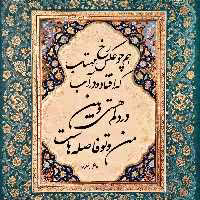 همچو عکس رخ مهتاب
که افتاده در آب
در دلم هستی و بین
من و تو فاصله هاست